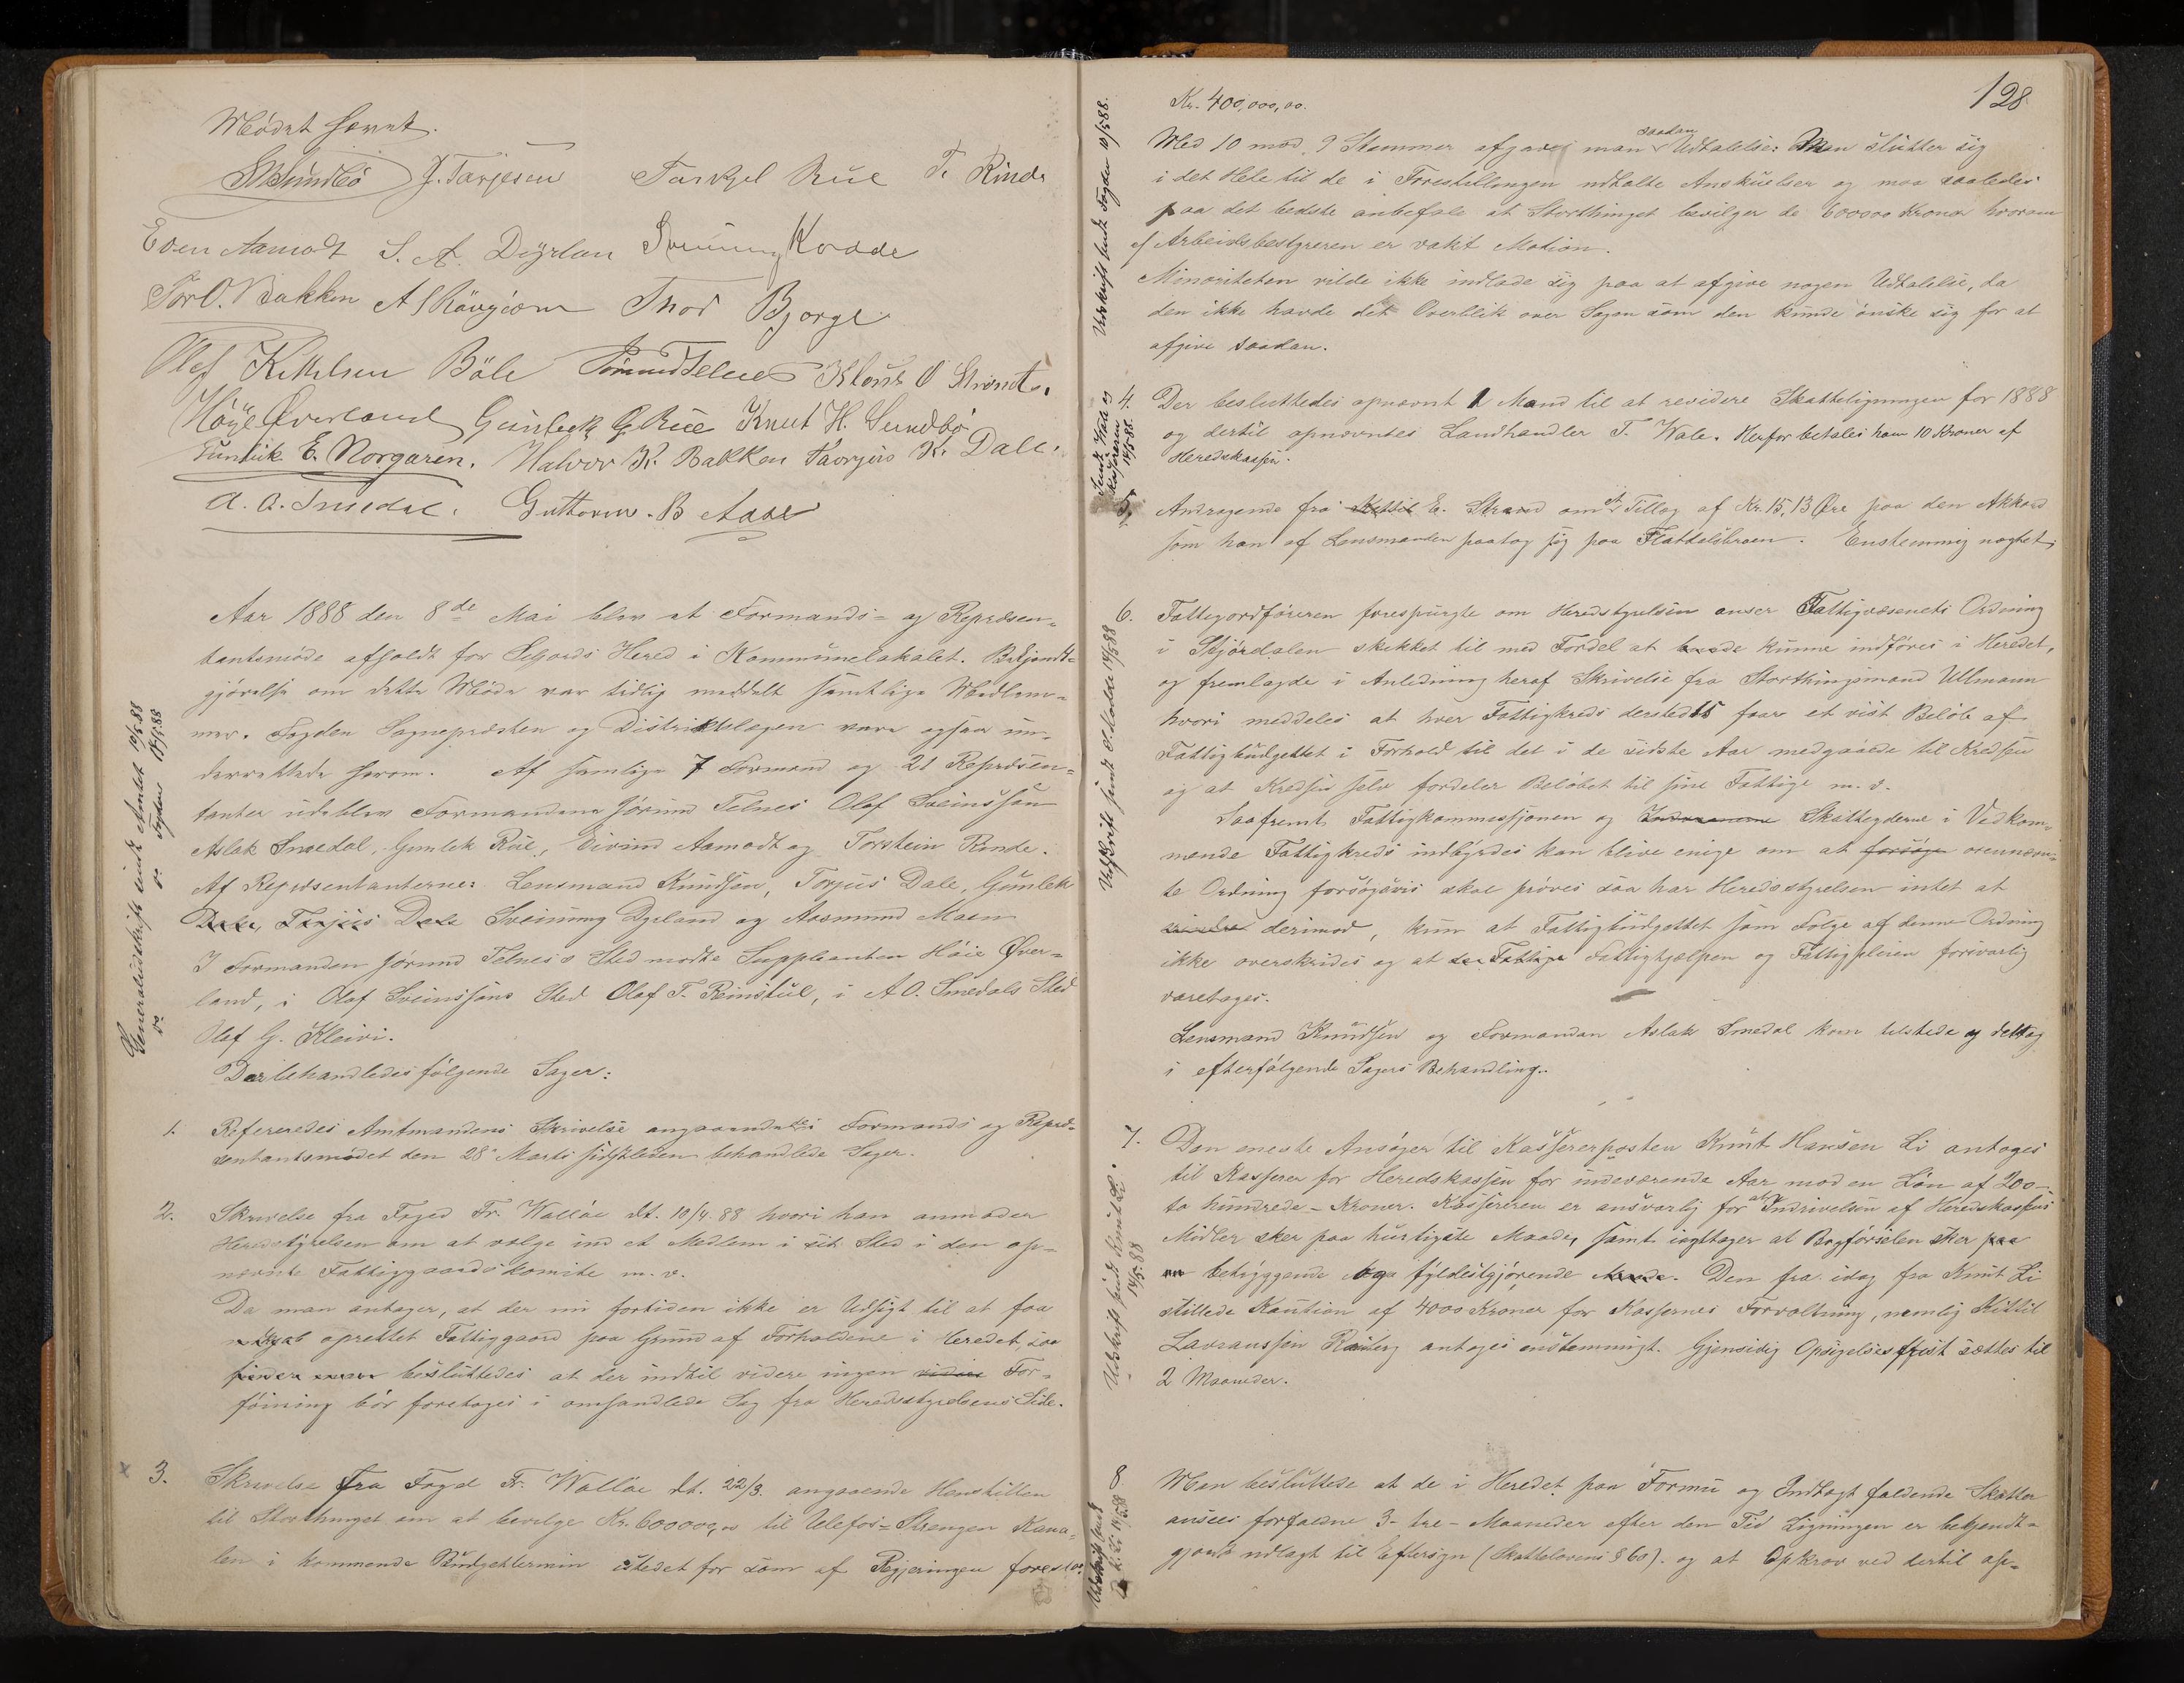 Mödet hævet.
J. Tarjesen Tarkjel Rue T. Rinde
Even Aamodt S. A. Dÿrlan Sveinung Kovade
Tor O. Bakken Thor Bjorge
Olaf Kittelsen Böle Jörund Telnes Klaus O
Höye Øverland Gunleik G. Rue Knut H. Sundbö
Gunleik E. Norgaren. Halvor K. Bakken Taarjus K. Dale.
A. A. Smedal. Guttorm B Aase
Aar 1888 den 8de Mai blev et Formands- og Repræsen-
tantsmöde afholdt for Seljords Hered i Kommunelokalet. Bekjendt-
gjörelse om dette Möde var tidlig meddelt samtlige Medlem-
mer. Fogden Sognepræsten og Distriktslægen vare ogsaa un-
derrettede herom. Af samlige 7 Formænd og 21 Repræsen-
tanter udeblev Formændene Jörund Telnes Olaf Sveinssön
Aslak Smedal, Gunlek Rue, Eivind Aamodt og Torstein Rinde.
Af Repræsentanterne: Lensmand Knudsen, Torjus Dale, Gunlek
Dale, Torjus Dale Sveinung Dyrland og Aasmund Moen
I Formanden Jörund Telnes's Sted mødte Suppleanten Höie Øver-
land, i Olaf Sveinssöns Sted Olaf T. Reinstul, i A O. Smedals Sted
Olaf G. Kleivi.
Der behandledes følgende Sager:
Generaludskrift sendt Amtet 10/5 88
do do Fogden 14/5 88
1. Refereredes Amtmandens Skrivelse angaaende de i Formands og Repræ-
sentantsmødet den 28 Marts sidstleden behandlede Sager.
2. Skrivelse fra Foged Fr. Wallöe dt. 10/4 88 hvori han anmoder
Heredsstyrelsen om at vælge ind et Medlem i sit Sted i den op-
nævnte Fattiggaardskomite m. v.
Da man antager, at der nu fortiden ikke er Udsigt til at faa
oprettet Fattiggaard paa Grund af Forholdene i Heredet, saa
finder besluttedes at der indtil videre ingen videre For-
föining bör foretages i omhandlede Sag fra Heredsstyrelsens Side.
x 3. Skrivelse fra Foged Fr. Wallöe dt. 22/3. angaaende Henstillen
til Storthinget om at bevilge Kr. 600000,00 til Ulefos-Strengen Kana-
len i kommende Budgettermin istedet for som af Regjeringen foreslaaet
128
Kr. 400,000,00.
Med 10 mod 9 Stemmer afgaves man saadan Udtalelse: Man slutter sig
i det Hele til de i Forestillingen udtalte Anskuelser og maa saaledes
paa det bedste anbefale at Storthinget bevilger de 600000 Kroner hvorom
af Arbeidsbestyreren er vakt Motion.
Minoriteten vilde ikke indlade sig paa at afgive nogen Udtalelse, da
den ikke havde det Overblik over Sagen som den kunde önske sig for at
afgive saadan.
Udskrift sendt Fogden 10/5 88.
4. Der besluttedes opnævnt 1 Mand til at revidere Skatteligningen for 1888
og dertil opnævntes Landhandler T. Wale. Herfor betales ham 10 Kroner af
Heredskassen.
Sendt Wale og
Kassereren 14/5-88.
5. Andragende fra Kittil E. Strand om et Tillæg af Kr. 15,13 Øre paa den Akkord
som han af Lensmanden paatog sig paa Flatdalsbroen. Enstemmig nægtet.
6. Fattigordföreren forespurgte om Heredstyrelsen anser Fattigvæsenets Ordning
i Stjördalen skikket til med Fordel at kunne indföres i Heredet,
og fremlagde i Anledning heraf Skrivelse fra Storthingsmand Ullmann
hvori meddeles at hver Fattigkreds dersteds faar et vist Beløb af
Fattigbudgettet i Forhold til det i de sidste Aar medgaaede til Kredsen
og at Kredsen selv fordeler Beløbet til sine Fattige m. v.
Saafremt Fattigkommissjonen og Skatteyderne i Vedkom-
mende Fattigkreds indbyrdes kan blive enige om at forsöge ovennævn-
te Ordning forsögsvis skal pröves saa har Heredsstyrelsen intet at
derimod, kun at Fattigbudgettet som Følge af denne Ordning
ikke overskrides og at den Fattige Fattighjælpen og Fattigpleien forsvarlig
varetages.
Lensmand Knudsen og Formanden Aslak Smedal kom tilstede og deltog
i efterfølgende Sagers Behandling.
7. Den eneste Ansöger til Kassererposten Knut Hansen Li antoges
til Kasserer for Heredskassen for indeværende Aar mod en Løn af 200-
to hundrede - Kroner. Kassereren er ansvarlig for at Indrivelsen af Heredskassens
Midler sker paa hurtigste Maade, samt iagttager at Bogförselen sker paa
en betryggende og fyldestgjörende Maade. Den fra idag fra Knut Li
stillede Kaution af 4000 Kroner for Kassernes Forvaltning, nemlig Kittil
Lavranssön antoges enstemmigt. Gjensidig Opsigelsesfrist sættes til
2 Maaneder.
Udskrift sendt Knut Li.
14/5-88
8 Man besluttede at de i Heredet paa Formu og Indtægt faldende Skatter
ansees forfaldne 3- tre - Maaneder efter den Tid Ligningen er bekjendt-
gjord udlagt til Eftersyn (Skattelovens § 60). og at Opkrav ved dertil op-
Udskrift sendt